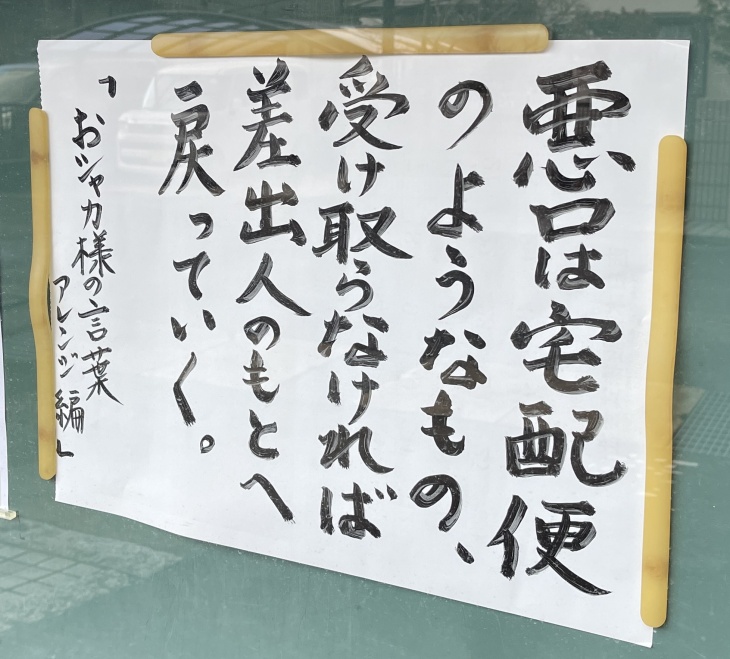 悪口は宅配便
のようなもの、
受け取らなければ
差出人のもとへ
戻っていく。
「おシャカ様の言葉
アレンジ編」